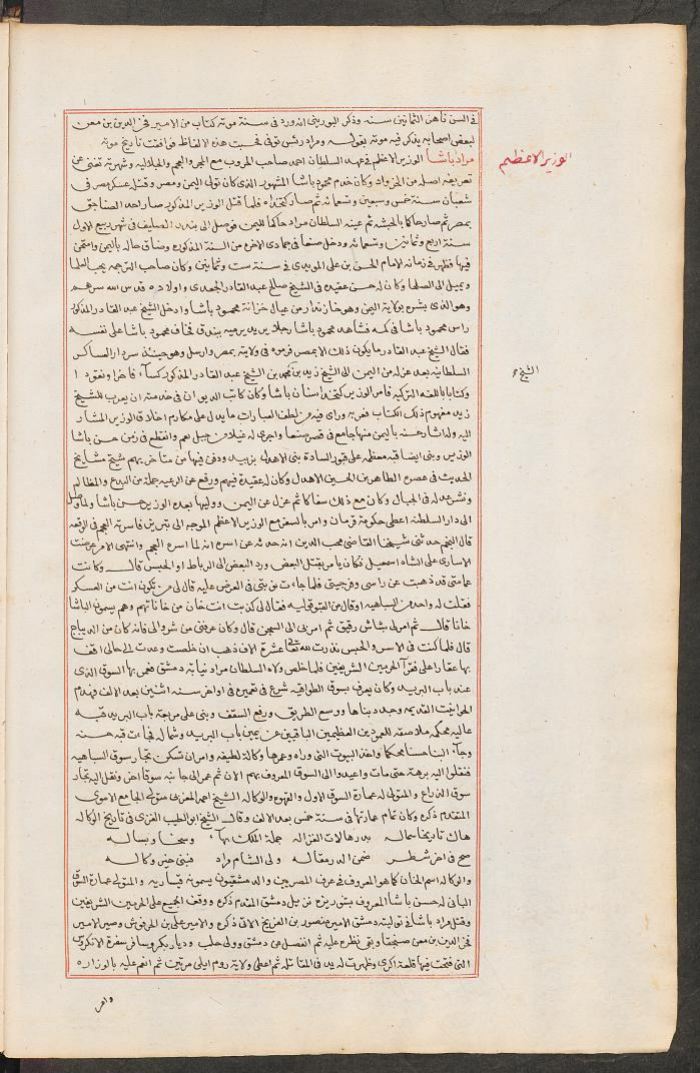 في السن ناهز الثمانين سنه وذكر البوريني انه ورد في سنة موته كتاب من الامير فخر الدين بن معن
لبعض اصحابه يذكر فيه موته بقوله ومراد رئس توفي فحسبت هذه الالفاظ فوافقت تاريخ موته
مراد باشا الوزير الاعظم في عهد السلطان احمد صاحب الحروب مع المجر والعجم والجلاليه وشهرته تغنى عن
الوزير الاعظم
تعريفه اصله من الخرواد وكان خدم محمود باشا المشهور الذي كان تولى اليمن ومصر وقتل عسكر مصر في
شعبان سنة خمس وسبعين وتسعمائه ثم صار كتخداه فلما قتل الوزير المذكور صار احد الصناجق
بمصر ثم صار حاكما بالحبشة ثم عينه السلطان مراد حاكما لليمن فوصل الى بندر الصليف في شهر ربيع الاول
سنة اربع وثمانين وتسعمائه ودخل صنعا في جمادى الاخره من السنة المذكوره وضاق حاله باليمن وامتحن
فيها فظهر في زمانه الامام الحسن بن علي المويدي في سنة ست وثمانين وكان صاحب الترجمه يحب العلما
ويميل الى الصلحا وكان له حسن عقيده في الشيخ صالح عبد القادر الجعدي واولاده قدس الله سرهم
وهو الذي بشره بولاية اليمن وهو خازندار من عيال خزانة محمود باشا وادخل الشيخ عبد القادر المذكور
راس محمود باشا في كمه فشاهد محمود باشا رجلا يريد يرميه ببندق فخاف محمود باشا على نفسه
فقال الشيخ عبد القادر ما يكون ذلك الا بمصر فرمى في ولايته بمصر وارسل وهو حينئذ سردار العساكر
السلطانيه بعد عزله من اليمن الى الشيخ زيد بن محمد بن الشيخ عبد القادر المذكور كساء فاخرا ونقودا
الشيخ
وكتابا باللغه التركيه فامر الوزير كتخدا سنان باشا وكان كاتب الديوان في خدمته ان يعرب للشيخ
زيد مفهوم ذلك الكتاب فعربه وراى فيه من لطف العبارات ما يدل على مكارم اخلاق الوزير المشار
اليه وله اثار حسنه باليمن منها جامع في قصر صنعا واجرى له غيلا من جبل نقم وانقطع في زمن حسن باشا
الوزير وبنى ايضا قبه معظمه على قبور السادة بنى الاهدل بزبيد ودفن فيها من متاخريهم شيخ مشايخ
الحديث في عصره الطاهر بن الحسين الاهدل وكان له عقيدة فيهم ورفع عن الرعيه جملة من البدع والمظالم
وكان مع ذلك سفاكا ثم عزل عن اليمن ووليها بعده الوزير حسن باشا ولما وصل
الى دار السلطنه اعطى حكومة قرمان وامر بالسفر مع الوزير الاعظم الموجه الى تبريز فاسرته العجم في الوقعه
قال النجم حدثني شيخنا القاضي محب الدين انه حدثه عن اسره انه لما اسره العجم وانتهى الامر عرضت
الاسارى على الشاه اسمعيل فكان يامر بقتل البعض ورد البعض الى الرباط او الحبس قال وكانت
عمامتي قد ذهبت عن راسي وفرجيتي فلما جاءت نوبتي في العرض عليه قال لى من تكون انت من العسكر
فقلت له واحد من السباهيه او قال من فقال لي كذبت انت خان من خاناتهم وهم يسمون الباشا
خانا قال ثم امر لي بشاش رقيق ثم امر بي الى السجن قال وكان عرفني من شروالي فانه كان من الديباج
قال فلما كنت في الاسر والحبس نذرت لله تعالى عشرة الاف ذهب ان خلصت وعدت الى حالي اقف
بها عقارا على فقرآ الحرمين الشريفين فلما خلص ولاه السلطان مراد نيابة دمشق فعمر بها السوق الذي
عند باب البريد وكان يعرف بسوق الطواقيه شرع في تعميره في اواخر سنه اثنين بعد الالف فهدم
الحوانيت القديمه وجدد بناها ووسع الطريق ورفع السقف وبنى على مربعة باب البريد قبه
عاليه محكمه ملاصقه للعمودين العظيمين الباقيين عن يمين باب البريد وشماله فجاءت قبه حسنه
وجآء البنا حسنا محكما واخذ البيوت التي وراه وعمرها وكالة لطيفه وامر ان تسكن تجار سوق السباهيه
فنقلوا اليه برهة حتى مات واعيدوا الى السوق المعروف بهم الان ثم عمر الى جانبه سوقا اخر ونقل اليه تجار
سوق الذراع والمتولى له عمارة السوق الاول والقهوه والوكاله الشيخ احمد المغربي متولى الجامع الاموي
المتقدم ذكره وكان تمام عمارتها في سنة خمس بعد الالف وقال الشيخ ابو الطيب الغزي في تاريخ الوكاله
هاك تاريخا سماله بدرهالات الغزاله جملة الملك بهآء وسخا وبساله
صح في اخر شطر ضمن الدر مقاله ولى الشام مراد فبنى خير وكاله
والوكاله اسم الخان كما هو المعروف في عرف المصريين والدمشقيون يسمونه قيساريه والمتولى عمارة السوق
الثاني له حسن باشا المعروف بشوربزه نزيل دمشق المتقدم ذكره ووقف الجميع على الحرمين الشريفين
وقتل مراد باشا في توليته دمشق الامير منصور بن الفريخ الاتي ذكره والامير علي بن الحرفوش وصير الامير
فخر الدين بن معن صنجقا وبقي نظره عليه ثم انفصل عن دمشق وولى حلب وديار بكر وسافر سفرة الانكروس
التي فتحت فيها قلعة اكري وظهرت له يد في المقاتله ثم اعطى ولاية روم ايلى مرتين ثم انعم عليه بالوزاره
وامر